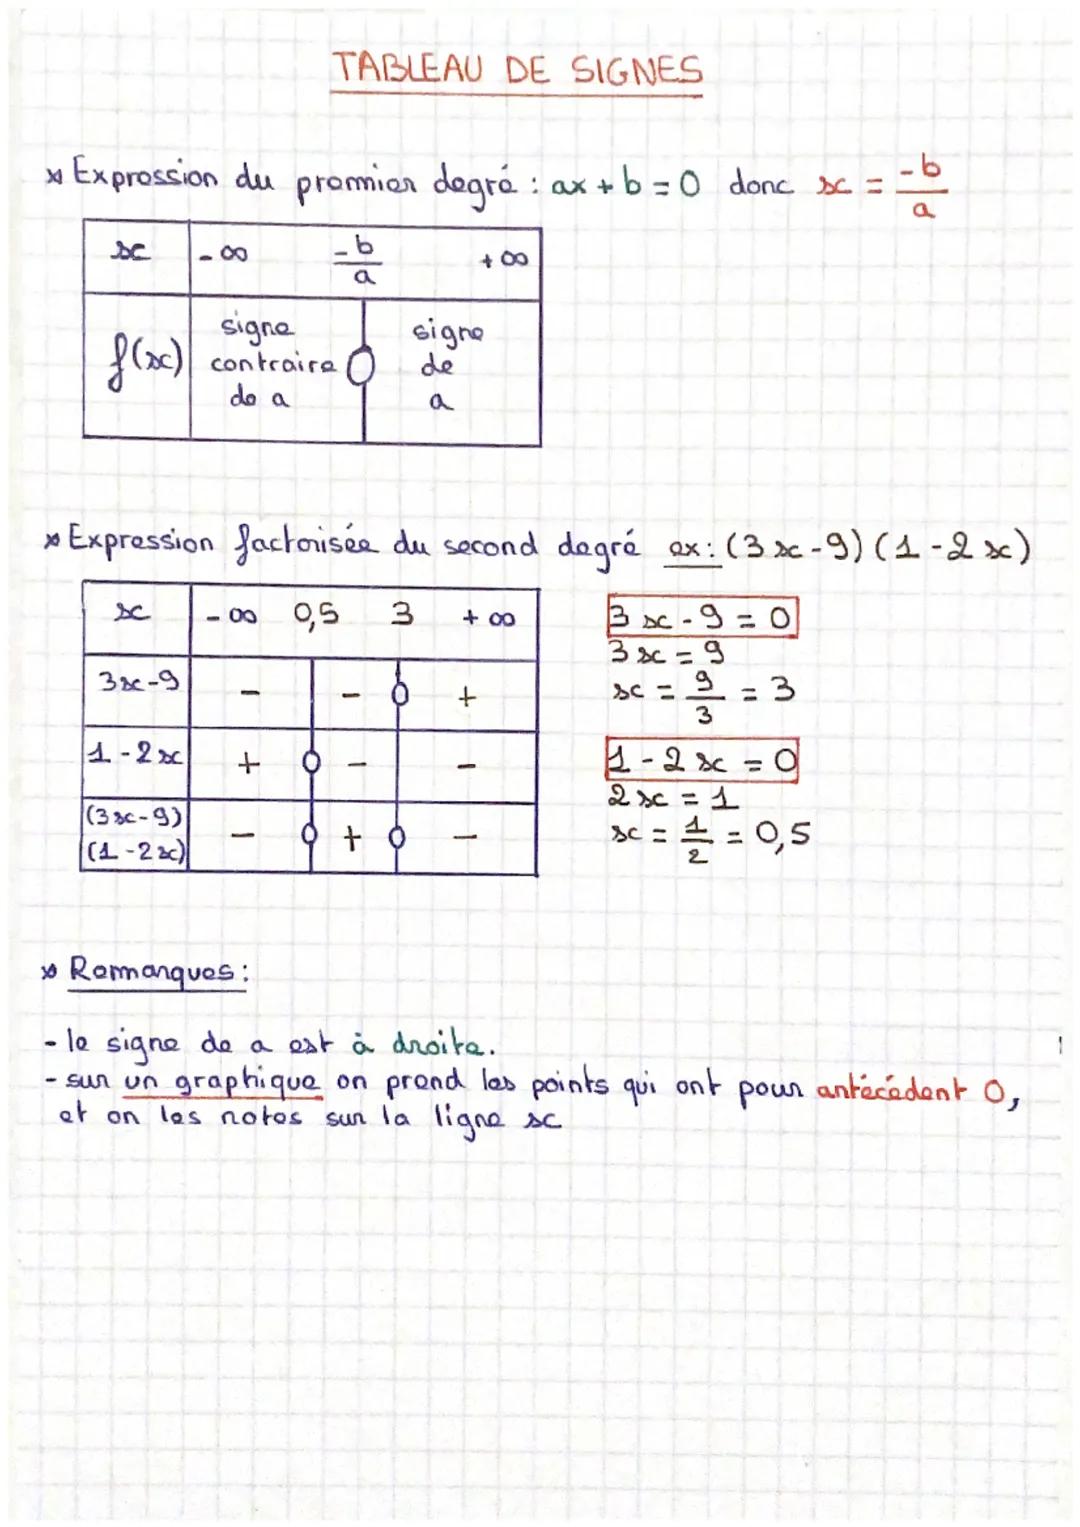 TABLEAU DE SIGNES
Expression du premier degré : ax + b = 0 donc x = -b/a
x -∞ -b/a +∞
f(x) signe contraire de a 0 signe de a
Expression factorisée du second degré ex: (3x-9)(1-2x)
x -∞ 0,5 3 +∞
3x-9 - - 0 +
1-2x + 0 - -
(3x-9)(1-2x) - 0 + 0 -
3x-9=0
3x=9
x = 9/3 = 3
1-2x=0
2x=1
x = 1/2 = 0,5
Remarques :
- le signe de a est à droite.
- sur un graphique on prend les points qui ont pour antécédent 0,
et on les notes sur la ligne x